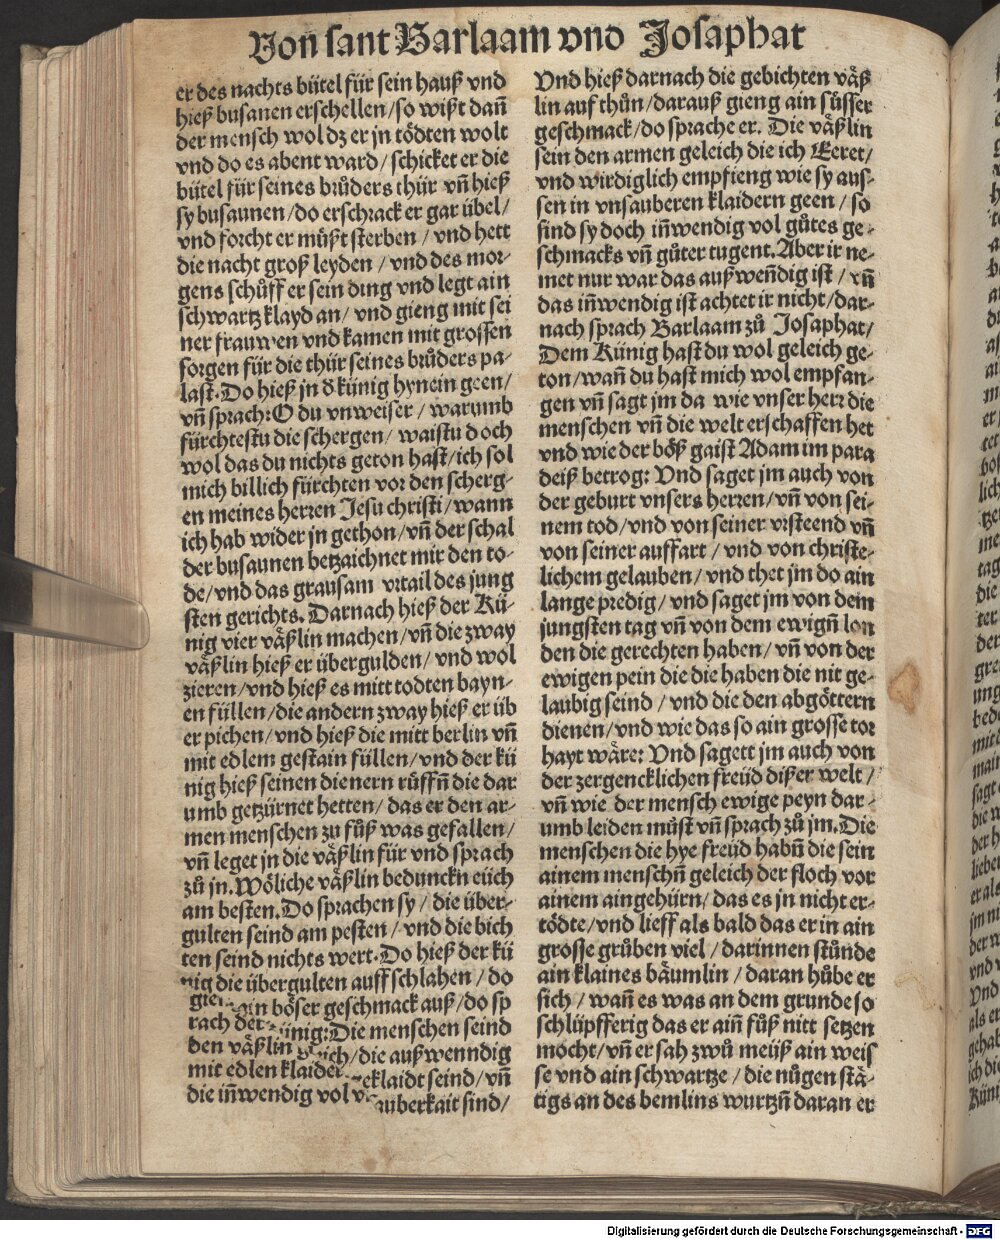 Von sant Barlaam vnd Josaphat
er des nachts bütel für sein hauß vnd
hieß busanen erschellen/so wißt dañ
der mensch wol dz er jn tödten wolt
vnd do es abent ward/schicket er die
bütel für seines brůders thür vñ hieß
sy busaunen/do erschrack er gar übel/
vnd forcht er müßt sterben/vnd hett
die nacht groß leyden/vnd des mor-
gens schůff er sein ding vnd legt ain
schwartz klayd an/vnd gieng mit sei
ner frauwen vnd kamen mit grossen
sorgen für die thür seines brůders pa-
last. Do hieß jn d künig hynein geen/
vñ sprach: O du vnweiser/warumb
fürchtestu die schergen/waistu doch
wol das du nichts geton hast/ich sol
mich billich fürchten vor den scherg-
en meines herren Jesu christi/wann
ich hab wider jn gethon/vñ der schal
der busaunen betzaichnet mir den to-
de/vnd das grausam vrtail des jung
sten gerichts. Darnach hieß der Kü-
nig vier väßlin machen/vñ die zway
väßlin hieß er übergulden/vnd wol
zieren/vnd hieß es mitt todten bayn-
en füllen/die andern zway hieß er üb
er pichen/vnd hieß die mitt berlin vñ
mit edlem gestain füllen/vnd der kü
nig hieß seinen dienern růffñ die dar
umb getzürnet hetten/das er den ar-
men menschen zu fůß was gefallen/
vñ leget jn die väßlin für vnd sprach
zů jn. Wöliche väßlin beduncknn eüch
am besten. Do sprachen sy/die über-
gulten seind am pesten/vnd die bich
ten seind nichts wert. Do hieß der kü
nig die übergulten auff schlahen/do
ain böser geschmack auß/do sp
rach der künig: Die menschen seind
den väßlin die außwenndig
mit edlen klaider geklaidt seind/vñ
die iñwendig vol vnsauberkait sind/
Vnd hieß darnach die gebichten väß
lin auf thůn/darauß gieng ain süsser
geschmack/do sprache er. Die väßlin
sein den armen geleich die ich Eeret/
vnd wirdiglich empfieng wie sy aus-
sen in vnsauberen klaidern geen/so
sind sy doch iñwendig vol gůtes ge-
schmacks vñ gůter tugent. Aber ir ne-
met nur war das außweñdig ist/vñ
das iñwendig ist achtet ir nicht/dar-
nach sprach Barlaam zů Josaphat/
Dem Künig hast du wol geleich ge-
ton/wañ du hast mich wol empfan-
gen vñ sagt jm da wie vnser herr die
menschen vñ die welt erschaffen het
vnd wie der böß gaist Adam im para
deiß betrog: Vnd saget jm auch von
der geburt vnsers herren/vñ von sei-
nem tod/vnd von seiner vrsteend vñ
von seiner auffart/vnd von christe-
lichem gelauben/vnd thet jm do ain
lange predig/vnd saget jm von dem
jungsten tag vñ von dem ewigñ lon
den die gerechten haben/vñ von der
ewigen pein die die haben die nit ge-
laubig seind/vnd die den abgöttern
dienen/vnd wie das so ain grosse tor
hayt wäre: Vnd sagett jm auch von
der zergencklichen freüd dißer welt/
vñ wie der mensch ewige peyn dar-
umb leiden můst vñ sprach zů jm. Die
menschen die hye freüd habñ die sein
ainem menschñ geleich der floch vor
ainem aingehürn/das es jn nicht er-
tödte/vnd lieff als bald das er in ain
grosse grůben viel/darinnen stůnde
ain klaines bäumlin/daran hůbe er
sich/wañ es was an dem grunde so
schlüpfferig das er aiñ fůß nitt setzen
mocht/vñ er sah zwů meüß ain weis
se vnd ain schwartze/die nůgen stä-
tigs an des bemlins wurtzñ daran er
Digitalisierung gefördert durch die Deutsche Forschungsgemeinschaft - DFG